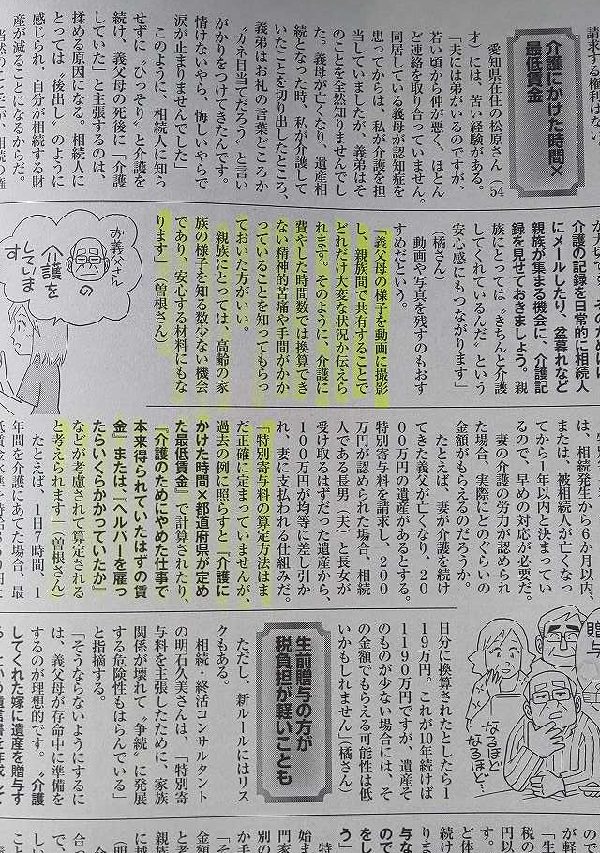 請求する権利はな
介護にかけた時間×
最低賃金
愛知県在住の松原さん(54
才)には、苦い経験がある。
「夫には弟がいるのですが、
若い頃から仲が悪く、ほとん
ど連絡を取り合っていません。
同居している義母が認知症を
患ってからは、私が介護を担
当していましたが、義弟はそ
のことを全然知りませんでし
た。義母が亡くなり、遺産相
続となった時、私が介護して
いたことを切り出したところ、
義弟はお礼の言葉どころか
〝カネ目当てだろう〟と言い
がかりをつけてきたんです。
情けないやら、悔しいやらで
涙が止まりませんでした」
このように、相続人に知ら
せずに〝ひっそり〟と介護を
続け、義父母の死後に「介護
していた」と主張するのは、
揉める原因になる。相続人に
とっては〝後出し〟のように
感じられ、自分が相続する財
産が減ることになるからだ。
が大切です。そのためには
介護の記録を日常的に相続人
にメールしたり、盆暮れなど
親族が集まる機会に、介護記
録を見せておきましょう。親
族にとっては〝きちんと介護
してくれているんだ〟という
安心感にもつながります」
(橘さん)
動画や写真を残すのもおす
すめだという。
「義父母の様子を動画に撮影
し、親族間で共有することで
どれだけ大変な状況か伝えら
れます。そのように、介護に
費やした時間数では換算でき
ない精神的苦痛や手間がかか
っていることを知ってもらっ
ておいた方がいい。
親族にとっては、高齢の家
族の様子を知る数少ない機会
であり、安心する材料にもな
ります」(曽根さん)
お義父さん
の
介護を
しています
は、相続発生から6か月以内、
または、被相続人が亡くなっ
てから1年以内と決まってい
るので、早めの対応が必要だ。
妻の介護の労力が認められ
た場合、実際にどのぐらいの
金額がもらえるのだろうか。
たとえば、妻が介護を続け
てきた義父が亡くなり、20
00万円の遺産があるとする。
特別寄与料を請求し、200
万円が認められた場合、相続
人である長男(夫)と長女が
受け取るはずだった遺産から、
100万円が均等に差し引か
れ、妻に支払われる仕組みだ。
「特別寄与料の算定方法はま
だ正確に定まっていませんが、
過去の例に照らすと『介護に
かけた時間×都道府県が定め
た最低賃金』で計算されたり、
『介護のためにやめた仕事で
本来得られていたはずの賃
金』または、『ヘルパーを雇っ
たらいくらかかっていたか』
などが考慮されて算定される
と考えられます」(曽根さん)
たとえば、1日7時間、1
年間を介護にあてた場合、最
贈与
なるほど
なるほど…
日分に換算されたとしたら1
19万円。これが10年続けば
1190万円ですが、遺産そ
のものが少ない場合は、そ
の金額でもらえる可能性は低
いかもしれません」(橘さん)
生前贈与の方が
税負担が軽いことも
ただし、新ルールにはリス
クもある。
相続・終活コンサルタント
の明石久美さんは、「特別寄
与料を主張したために、家族
関係が壊れて〝争続〟に発展
する危険性もはらんでいる」
と指摘する。
「そうならないようにするに
は、義父母が存命中に準備を
するのが理想的です。〝介護
してくれた嫁に遺産を贈与す